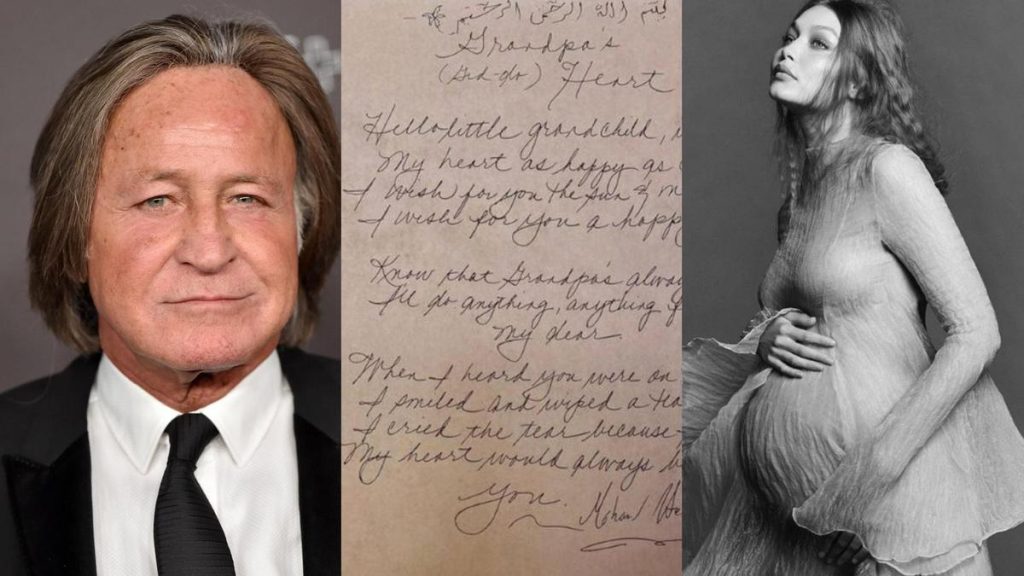 بسم الله الرحمن الرحيم
Grandpa's
(Gid-do) Heart
Hello little grandchild,
My heart as happy as
I wish for you the sun & m
I wish for you a happy
Know that Grandpa's alway
I'll do anything, anything
My dear
When I heard you were on
I smiled and wiped a tea
I cried the tear because
My heart would always b
you.